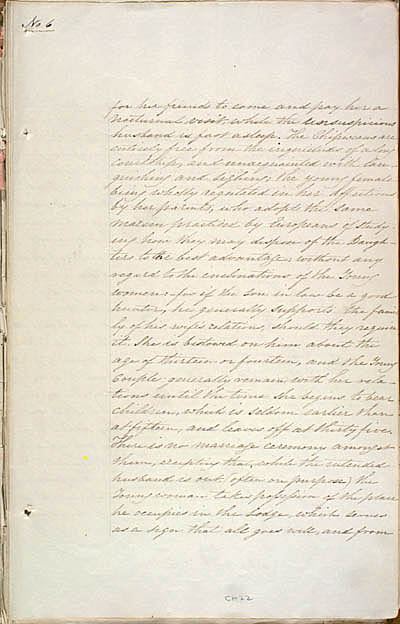 No 6
for her friend to come and pay her a
nocturnal visit, while the unsuspicious
husband is fast asleep. The Chipweans are
entirely free from the inquietude of a long
courtship, and unacquainted with lan-
guishing and sighing, the young female
being wholly regulated in her affections
by her parents, who adopt the same
maxim practised by Europeans of study
ing how they may dispose of the Daugh-
ters to the best advantage, without any
regard to the inclinations of the Young
woman; for if the son in law be a good
hunter, he generally supports the fami
ly of his wife's relations, should they require
it. She is bestowed on him about the
age of thirteen or fourteen, and the Young
Couple generally remain with her rela-
tions until the time she begins to bear
Children, which is seldom earlier than
at fifteen, and leaves off at thirty five.
There is no marriage ceremony amongst
them, excepting that, while the intended
husband is out (often on purpose) the
Young woman takes possession of the place
he occupies in the Lodge, which serves
as a sign that all goes well, and from
CH22